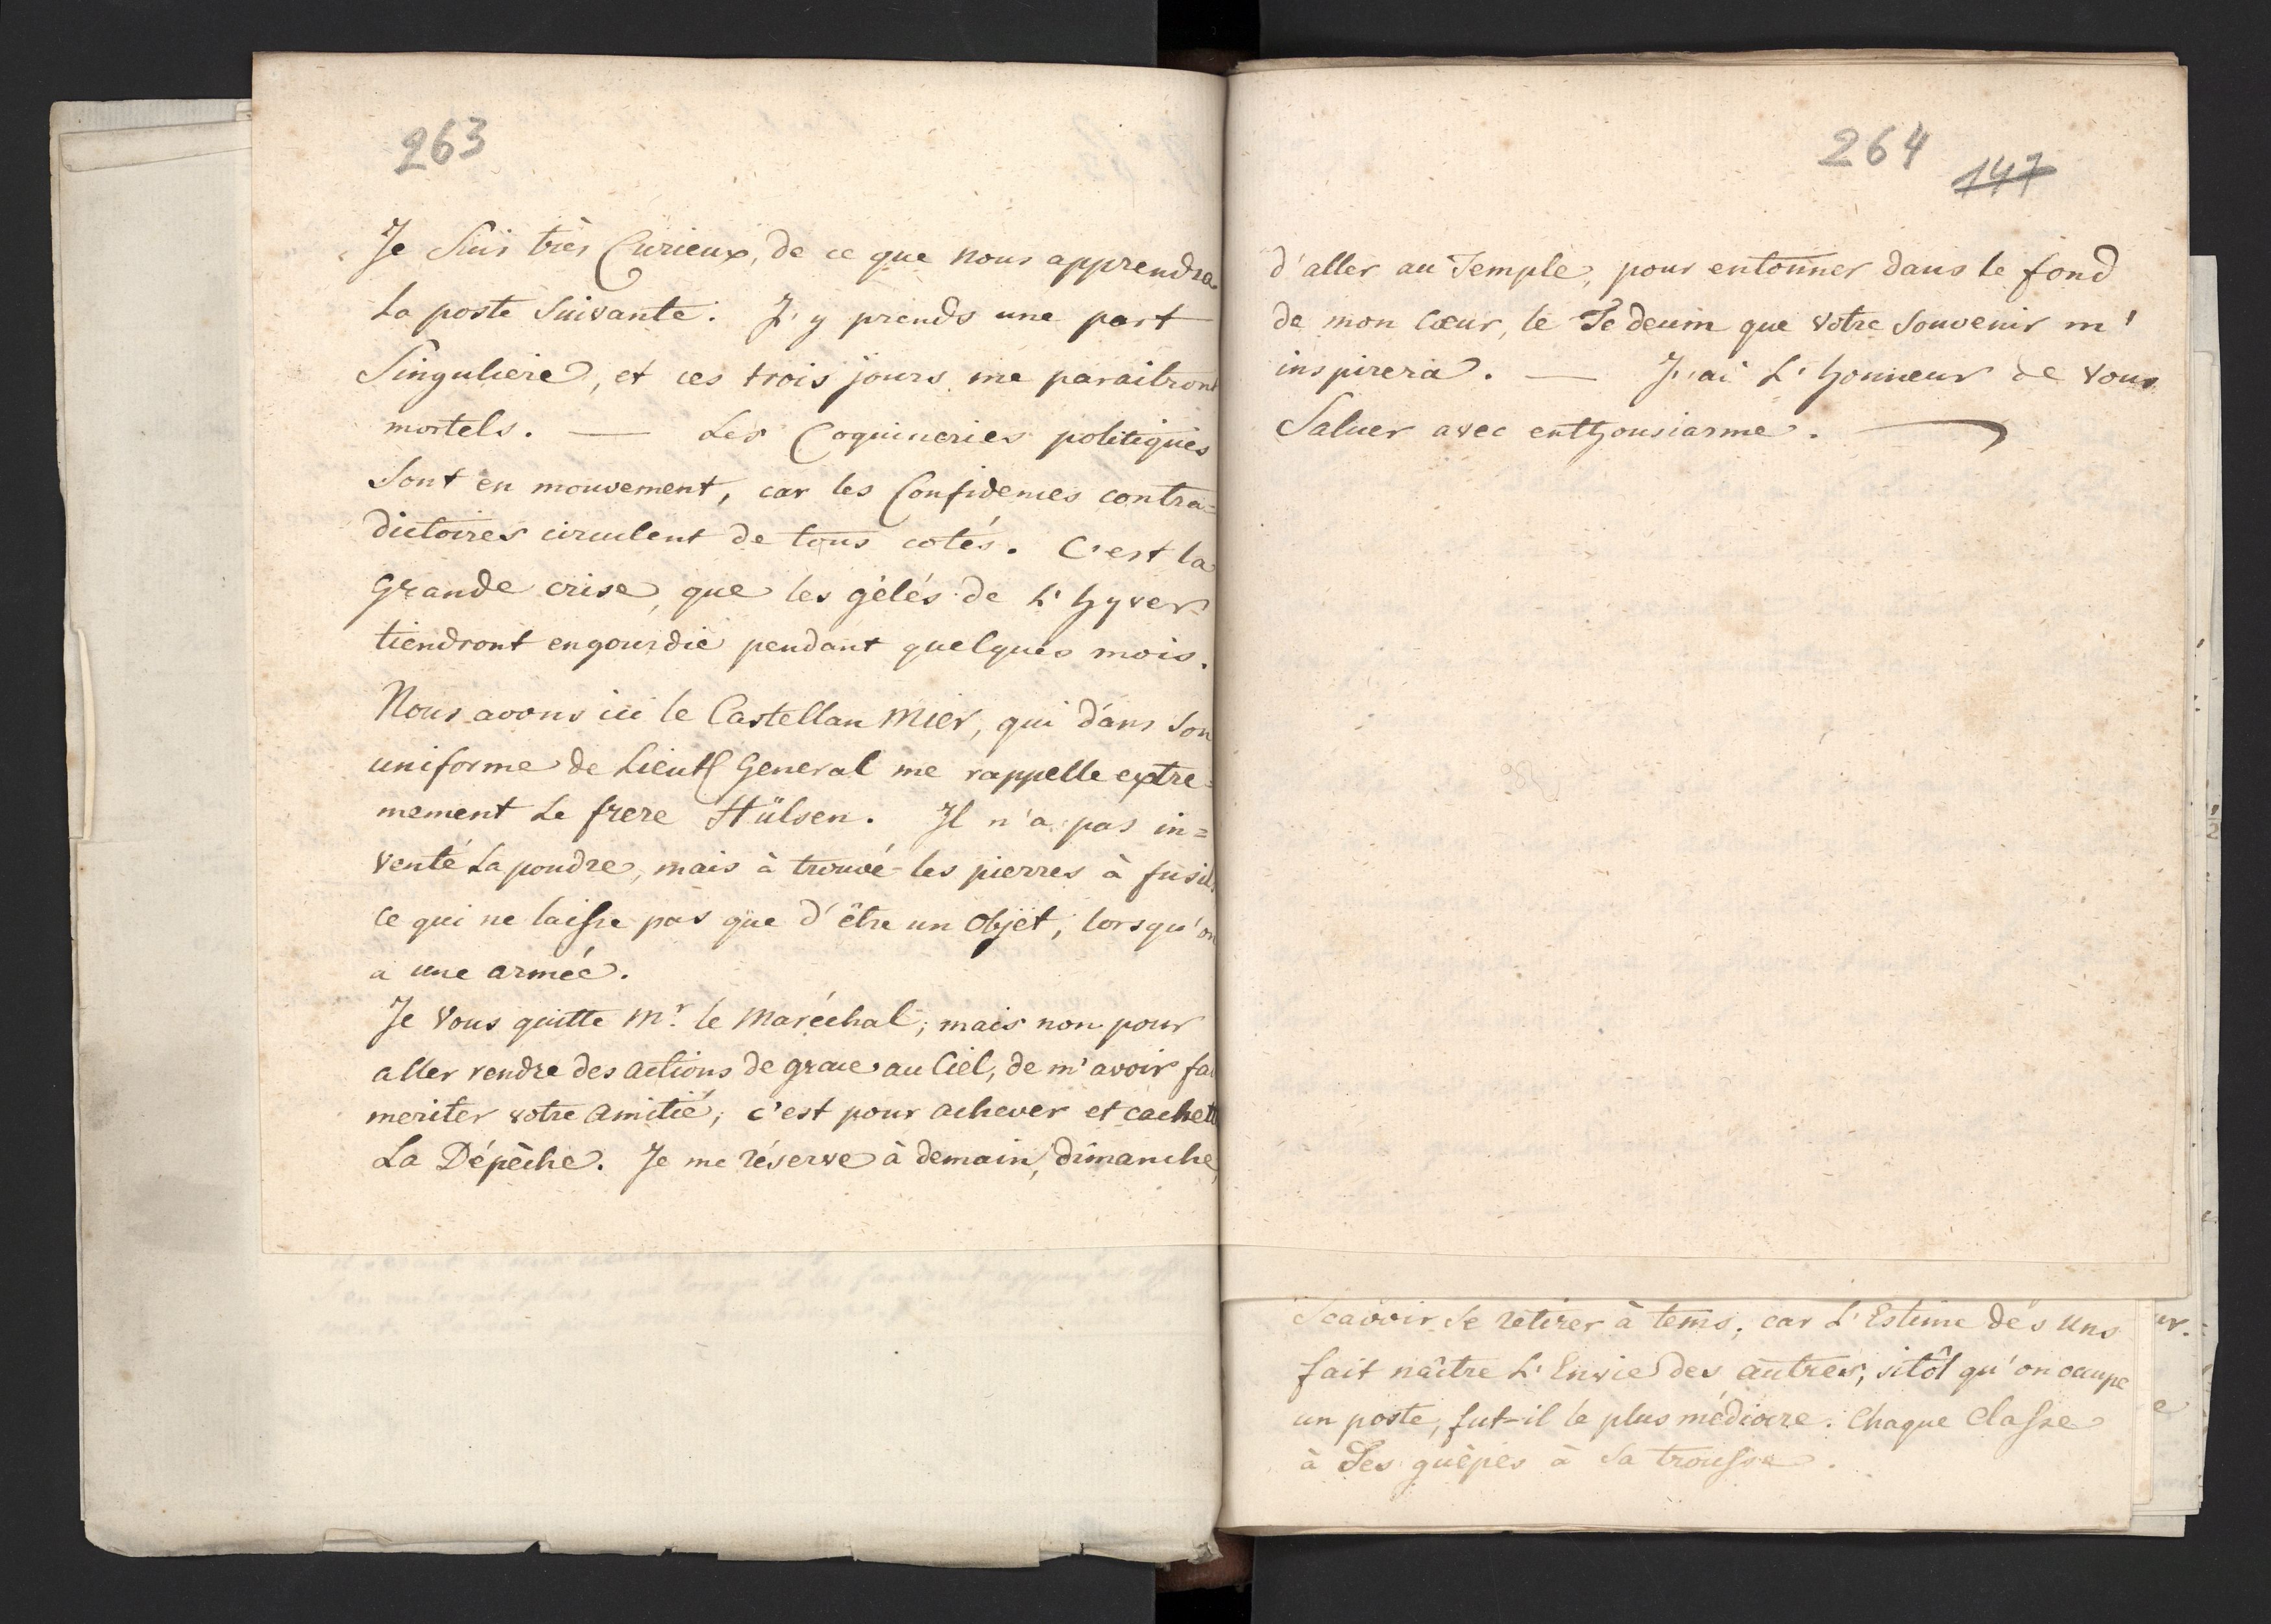 263
Je Suis très Curieux, de ce que nous apprendra
la poste suivante. J'y prends une part
Singuliere, et ces trois jours me paraitront
mortels. — Les Coquineries politiques
Sont en mouvement, car les Confidences contra=
dictoires circulent de tous cotés. C'est la
grande crise, que les gélés de L'hyver
tiendront engourdie pendant quelques mois.
Nous avons ici le Castellan Mier, qui dans Son
uniforme de Lieut General me rappelle extre=
mement Le frere Hülsen. Il n'a pas in=
venté La poudre, mais à trouvé les pierres à fusil,
ce qui ne laisse pas que d'être un Objet, lorsqu'on
a une armée.
Je Vous quitte Mr. le Maréchal; mais non pour
aller rendre des actions de grace au Ciel, de m'avoir fai
meriter votre amitié; c'est pour achever et cachett
La Dépêche. Je me réserve à demain, dimanche,
264
147
d'aller au Temple, pour entonner dans le fond
de mon Cœur, le Te deum que votre Souvenir m'
inspirera. — J'ai L'honneur de Vous
Saluer avec enthousiasme.
Scavoir Se retirer à tems; car L'Estime des Uns
fait naître L'Envie des autres, sitôt qu'on occupe
un poste, fut-il le plus médiocre. Chaque Classe
à Ses guêpes à Sa trousse.